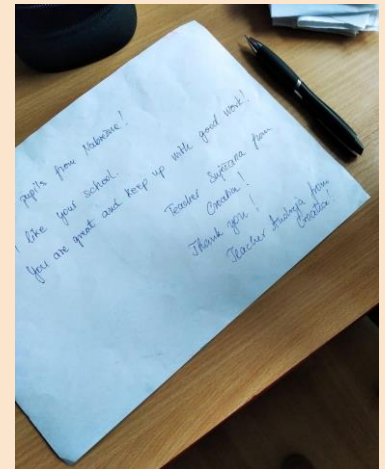 pupils from
I like your school.
You are great and keep up with good work!
Teacher Snježana from
Croatia!
Thank you!
Teacher Andreja from
Croatia!